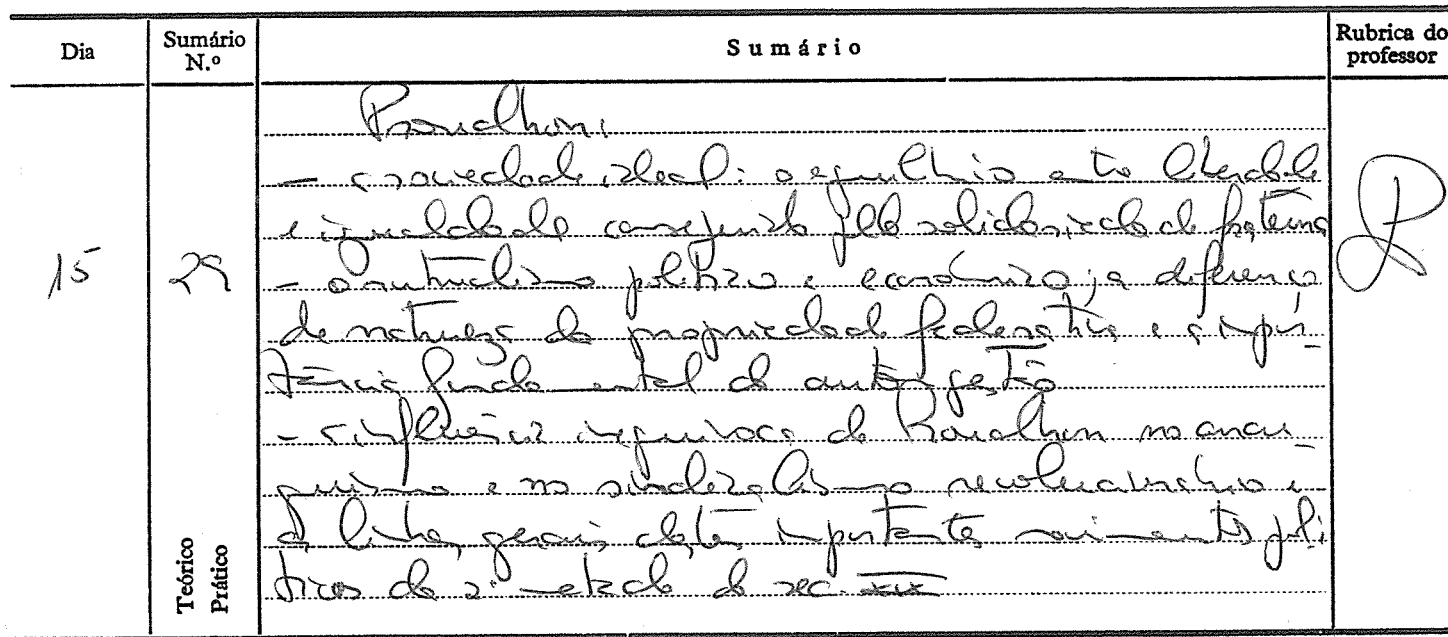 Dia
Sumário N.º
Sumário
Rubrica do professor
15
29
Teórico
Prático
Proudhon:
- a sociedade ideal: o equilíbrio entre liberdade
e igualdade conseguido pela solidariedade fraterna
- O mutualismo político e económico; a diferença
de natureza da propriedade federativa e a impor-
tância fundamental da autogestão
- a influência inequívoca de Proudhon no anar-
quismo e no sindicalismo revolucionário e
as linhas gerais destes importantes movimentos polí-
ticos da 2ª metade do séc. XIX